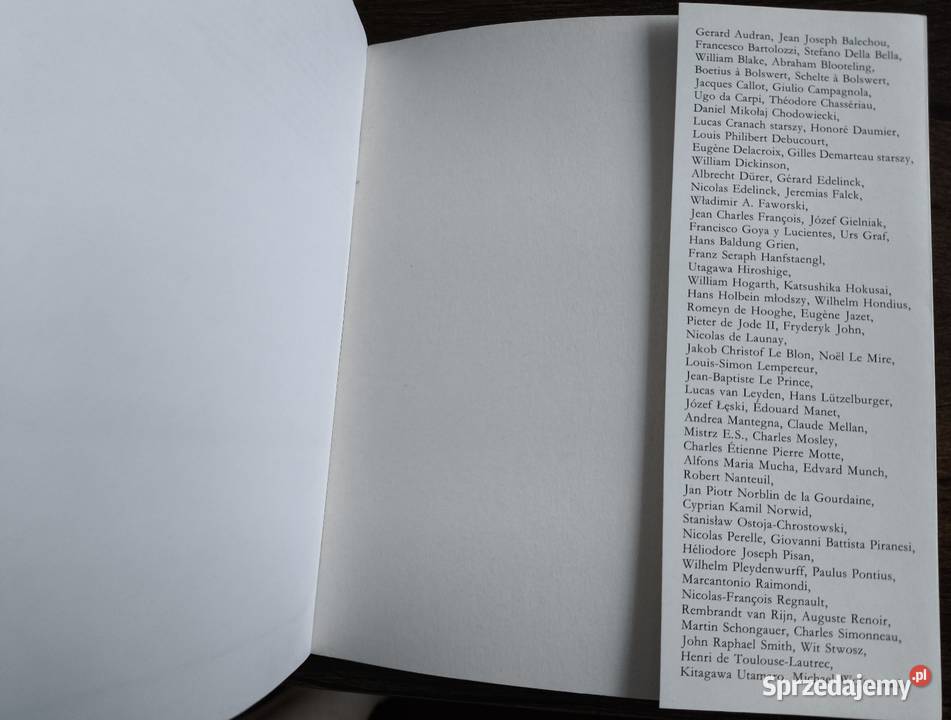 Gerard Audran, Jean Joseph Balechou,
Francesco Bartolozzi, Stefano Della Bella,
William Blake, Abraham Blooteling,
Boetius à Bolswert, Schelte à Bolswert,
Jacques Callot, Giulio Campagnola,
Ugo da Carpi, Théodore Chassériau,
Daniel Mikołaj Chodowiecki,
Lucas Cranach starszy, Honoré Daumier,
Louis Philibert Debucourt,
Eugène Delacroix, Gilles Demarteau starszy,
William Dickinson,
Albrecht Dürer, Gérard Edelinck,
Nicolas Edelinck, Jeremias Falck,
Władimir A. Faworski,
Jean Charles François, Józef Gielniak,
Francisco Goya y Lucientes, Urs Graf,
Hans Baldung Grien,
Franz Seraph Hanfstaengl,
Utagawa Hiroshige,
William Hogarth, Katsushika Hokusai,
Hans Holbein młodszy, Wilhelm Hondius,
Romeyn de Hooghe, Eugène Jazet,
Pieter de Jode II, Fryderyk John,
Nicolas de Launay,
Jakob Christof Le Blon, Noël Le Mire,
Louis-Simon Lempereur,
Jean-Baptiste Le Prince,
Lucas van Leyden, Hans Lützelburger,
Józef Łęski, Édouard Manet,
Andrea Mantegna, Claude Mellan,
Mistrz E.S., Charles Mosley,
Charles Étienne Pierre Motte,
Alfons Maria Mucha, Edvard Munch,
Robert Nanteuil,
Jan Piotr Norblin de la Gourdaine,
Cyprian Kamil Norwid,
Stanisław Ostoja-Chrostowski,
Nicolas Perelle, Giovanni Battista Piranesi,
Héliodore Joseph Pisan,
Wilhelm Pleydenwurff, Paulus Pontius,
Marcantonio Raimondi,
Nicolas-François Regnault,
Rembrandt van Rijn, Auguste Renoir,
Martin Schongauer, Charles Simonneau,
John Raphael Smith, Wit Stwosz,
Henri de Toulouse-Lautrec,
Kitagawa Utamaro, Michael
Sprzedajemy.pl